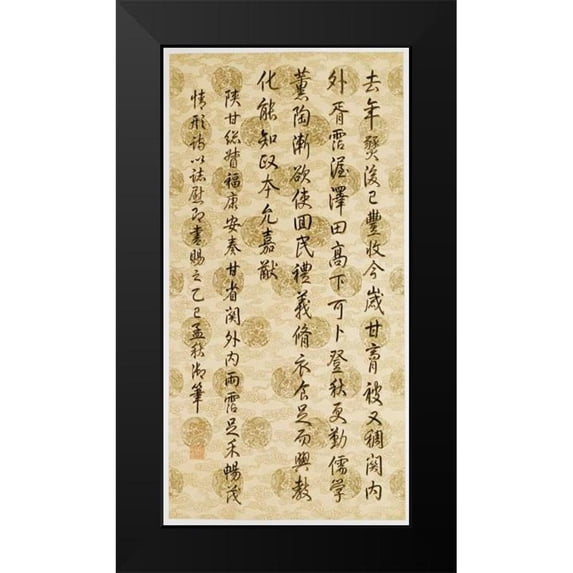 去年燹後已豐收今歲甘膏被又稠關內
外胥霑渥澤田高下可卜登秋更勤儒學
薰陶漸欲使回民禮義脩衣食足而興教
化能知政本允嘉猷
陝甘總督福康安奏甘省關外內雨霑足禾暢茂
情形詩以誌慰即書賜之乙巳孟秋御筆